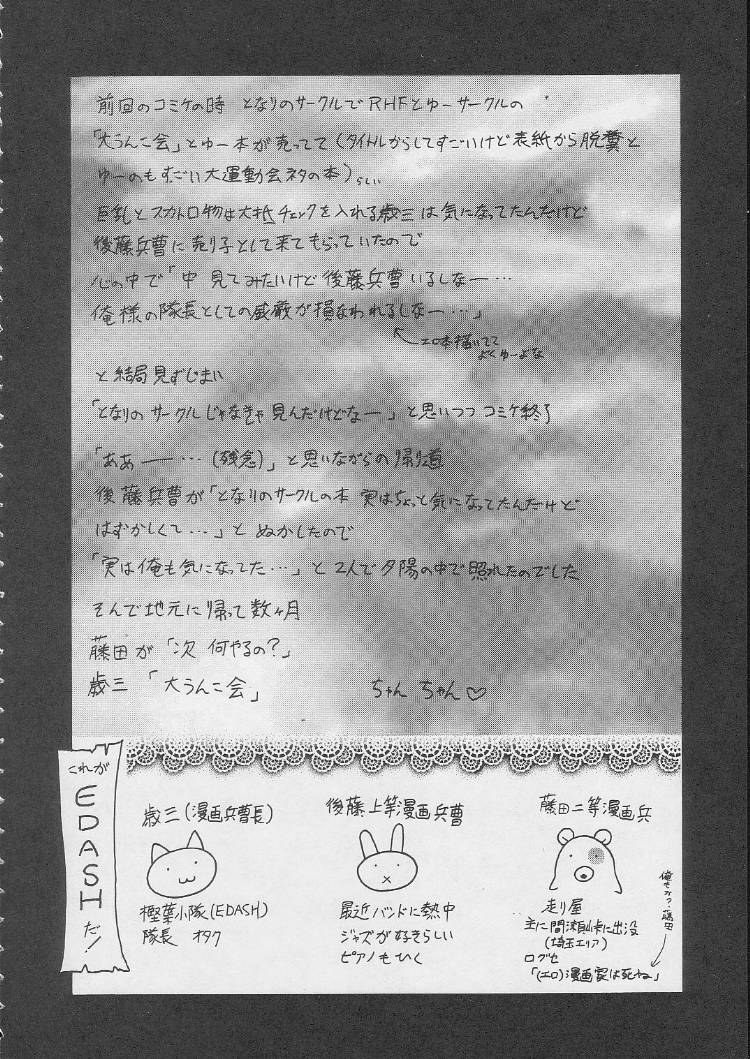 前回のコミケの時 となりのサークルでRHFとゆーサークルの
「大うんこ会」とゆー本が売ってて(タイトルからしてすごいけど表紙から脱糞と
ゆーのもすごい大運動会ネタの本)らしい
巨乳とスカトロ物は大抵チェックを入れる歳三は気になってたんだけど
後藤兵曹に売り子として来てもらっていたので
心の中で「中 見てみたいけど後藤兵曹いるしなー…
俺様の隊長としての威厳が損なわれるしなー…」
エロ本描いてて
よくゆーよな
と結局見ずじまい
「となりのサークルじゃなきゃ見んだけどなー」と思いつつコミケ終了
「ああー…(残念)」と思いながらの帰り道
後藤兵曹が「となりのサークルの本 実はちょっと気になってたんだけど
はずかしくて…」とぬかしたので
「実は俺も気になってた…」と2人で夕陽の中で照れたのでした
そんで地元に帰って数ヶ月
藤田が「次 何やるの?」
歳三「大うんこ会」 ちゃん ちゃん♡
これが
EDASH
だ!
歳三(漫画兵曹長)
樫葉小隊(EDASH)
隊長 オタク
後藤上等漫画兵曹
最近バンドに熱中
ジャズが好きらしい
ピアノもひく
藤田二等漫画兵
走り屋
主に間瀬峠に出没
(埼玉エリア)
口グセ
「(エロ)漫画家は死ね」
俺もか?藤田